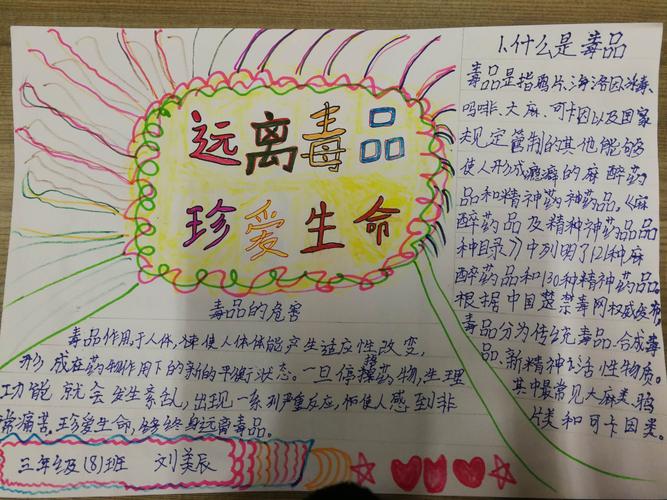 远离毒品
珍爱生命
1.什么是毒品
毒品是指鸦片、海洛因、冰毒、
吗啡、大麻、可卡因以及国家
规定管制的其他能够
使人形成瘾癖的麻醉药
品和精神药神药品，《麻
醉药品及精神神药品品
种目录》中列明了121种麻
醉药品和130种精神药品。
根据中国禁毒网权威发布，
毒品分为传统毒品、合成毒
品、新精神活性物质。
其中最常见大麻类、鸦
片类和可卡因类。
毒品的危害
毒品作用于人体，使人体体能产生适应性改变，
形成在药物作用下的新的平衡状态。一旦停掉药物，生理
功能就会发生紊乱，出现一系列严重反应，使人感到非
常痛苦。珍爱生命，终身远离毒品。
三年级(8)班 刘美辰